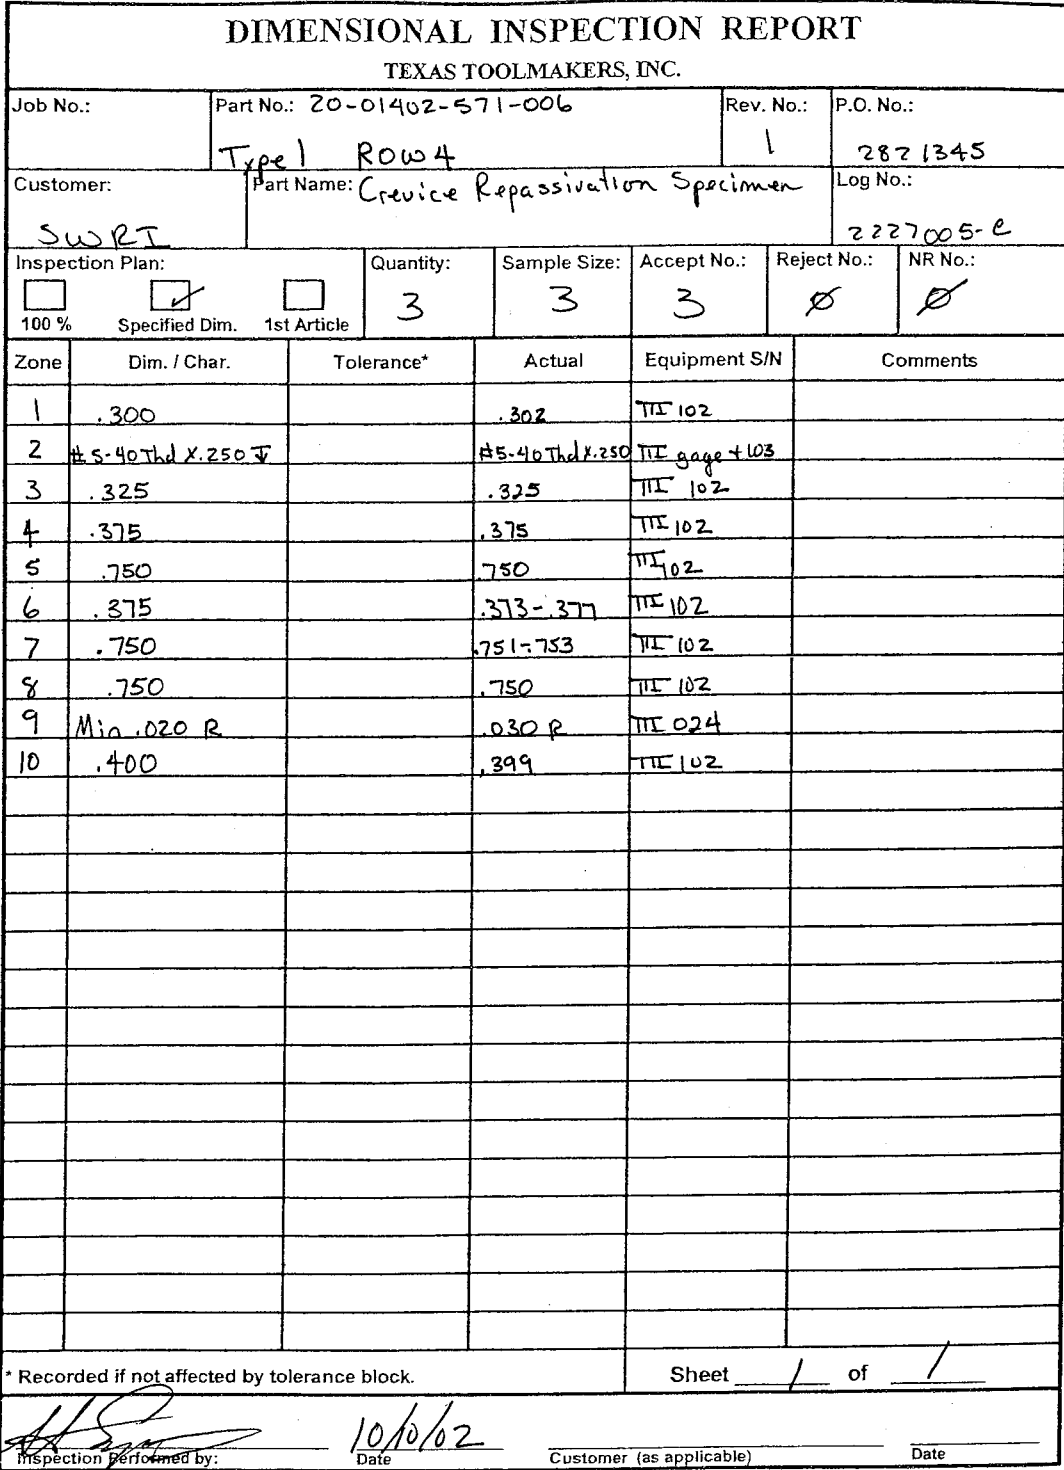 DIMENSIONAL INSPECTION REPORT
TEXAS TOOLMAKERS, INC.
Job No.: Part No.: 20-01402-571-006 Rev. No.: P.O. No.:
Type 1 ROW 4 1 2821345
Customer: Part Name: Crevice Repassivation Specimen Log No.:
SWRI 2227005-C
Inspection Plan: Quantity: Sample Size: Accept No.: Reject No.: NR No.:
✓ 3 3 3 Ø Ø
100 % Specified Dim. 1st Article
Zone Dim. / Char. Tolerance* Actual Equipment S/N Comments
1 .300 .302 TTI 102
2 #5-40 Thd X .250 ↧ #5-40 Thd X .250 TTI gage + 103
3 .325 .325 TTI 102
4 .375 .375 TTI 102
5 .750 .750 TTI 102
6 .375 .373-.377 TTI 102
7 .750 .751-.753 TTI 102
8 .750 .750 TTI 102
9 Min .020 R .030 R TTI 024
10 .400 .399 TTI 102
* Recorded if not affected by tolerance block. Sheet 1 of 1
10/10/02
Inspection Performed by: Date Customer (as applicable) Date